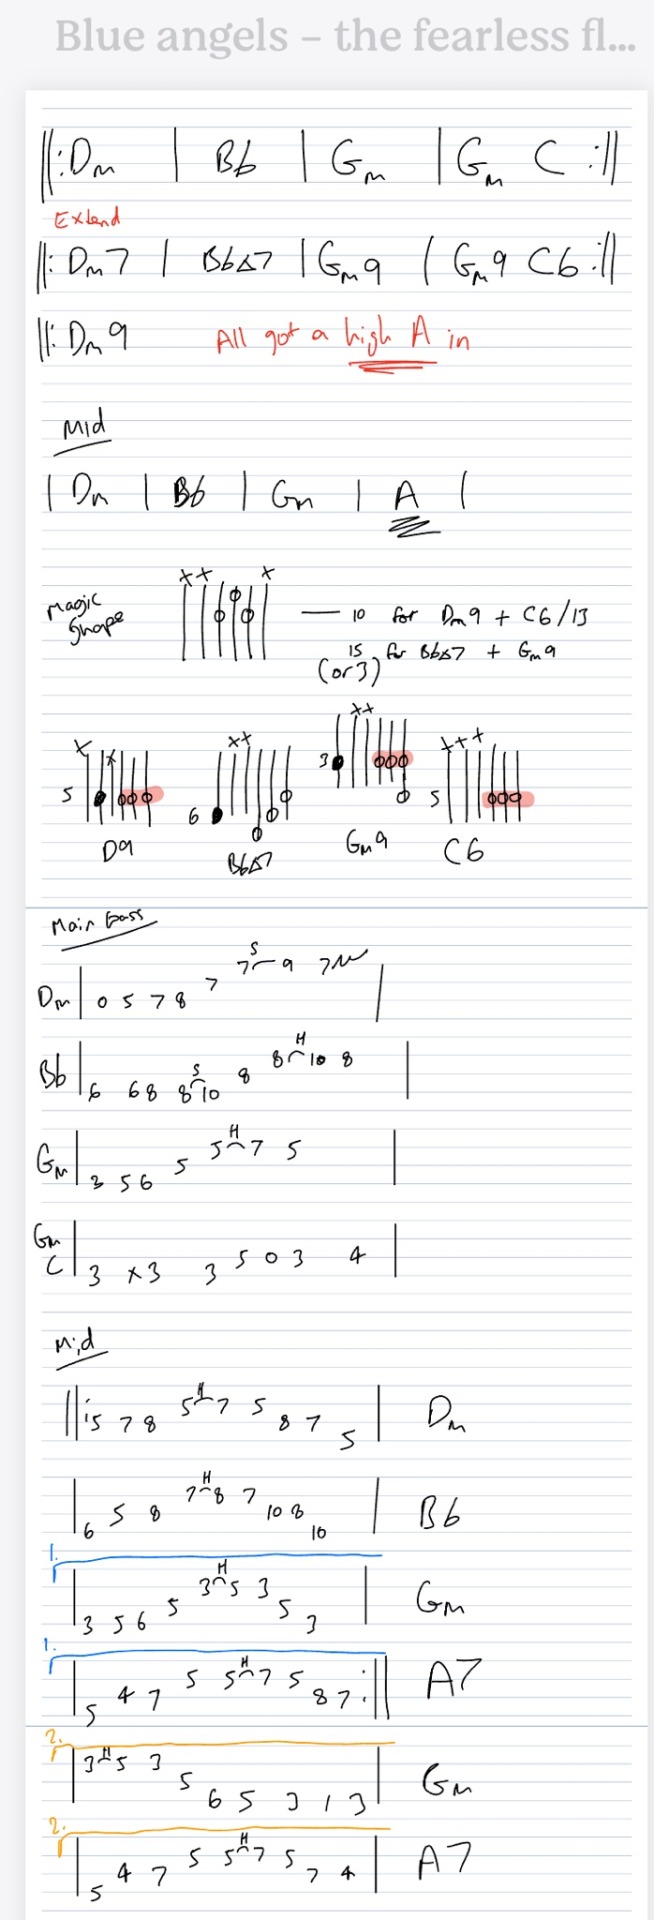 Blue angels – the fearless fl...
||: Dm | Bb | Gm | Gm C :||
Extend
||: Dm7 | BbΔ7 | Gm9 | Gm9 C6 :||
||: Dm9 All got a high A in
Mid
| Dm | Bb | Gm | A |
x x x
Magic Shape — 10 for Dm9 + C6/13
15 (or 3) for BbΔ7 + Gm9
x x x x x x x x x
5 6 3 5
D9 BbΔ7 Gm9 C6
Main bass
Dm | 0 5 7 8 7 7 S 9 7 |
Bb | 6 6 8 8 S 10 8 8 H 10 8 |
Gm | 3 5 6 5 5 H 7 5 |
Gm C | 3 x 3 3 5 0 3 4 |
Mid
||: 5 7 8 5 H 7 5 8 7 5 | Dm
| 6 5 8 7 H 8 7 10 8 10 | Bb
1. | 3 5 6 5 3 H 5 3 5 3 | Gm
1. | 5 4 7 5 5 H 7 5 8 7 :|| A7
2. | 3 H 5 3 5 6 5 3 1 3 | Gm
2. | 5 4 7 5 5 H 7 5 7 4 | A7